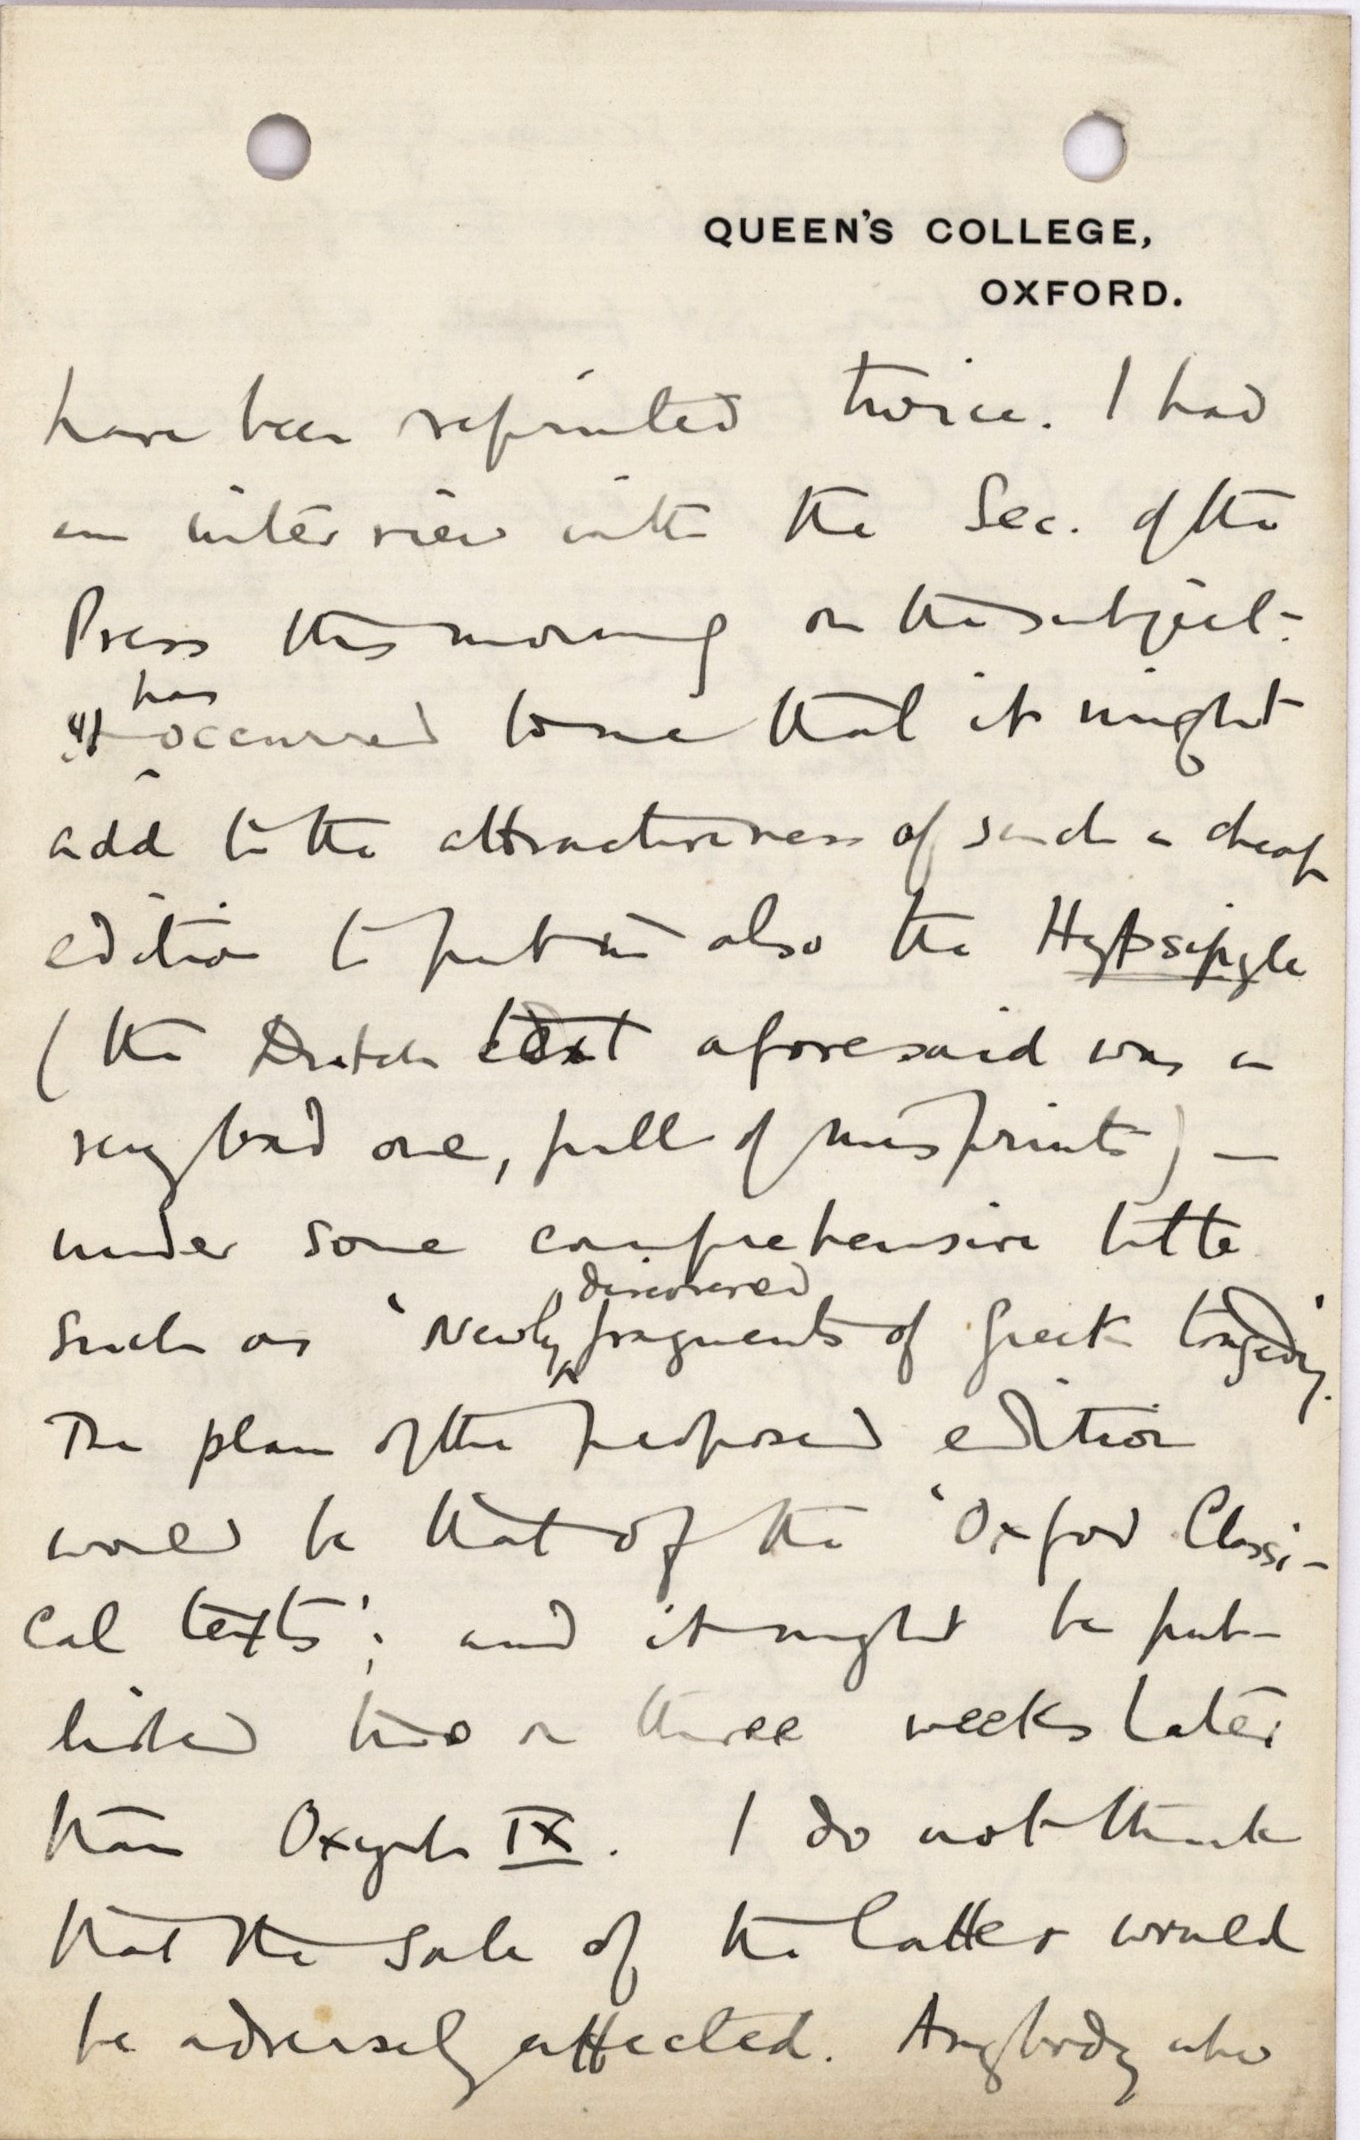 QUEEN'S COLLEGE,
OXFORD.
have been reprinted twice. I had
an interview with the Sec. of the
Press this morning on the subject.
It has occurred to me that it might
add to the attractiveness of such a cheap
edition to put in also the Hypsipyle
(the Dutch text aforesaid was a
very bad one, full of misprints) —
under some comprehensive title
such as 'Newly discovered fragments of Greek tragedy'.
The plan of the proposed edition
would be that of the 'Oxford Classi-
cal texts'; and it might be pub-
lished two or three weeks later
than Oxyrh IX. I do not think
that the sale of the latter would
be adversely affected. Anybody who